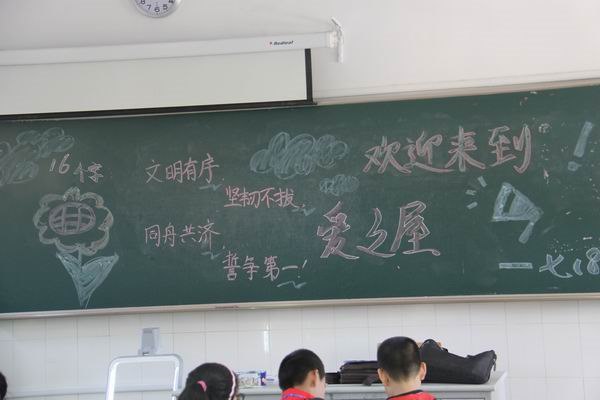 Redleaf
16个字
文明有序、
坚韧不拔、
同舟共济、
誓争第一！
欢迎来到
爱之屋
！
—七(8